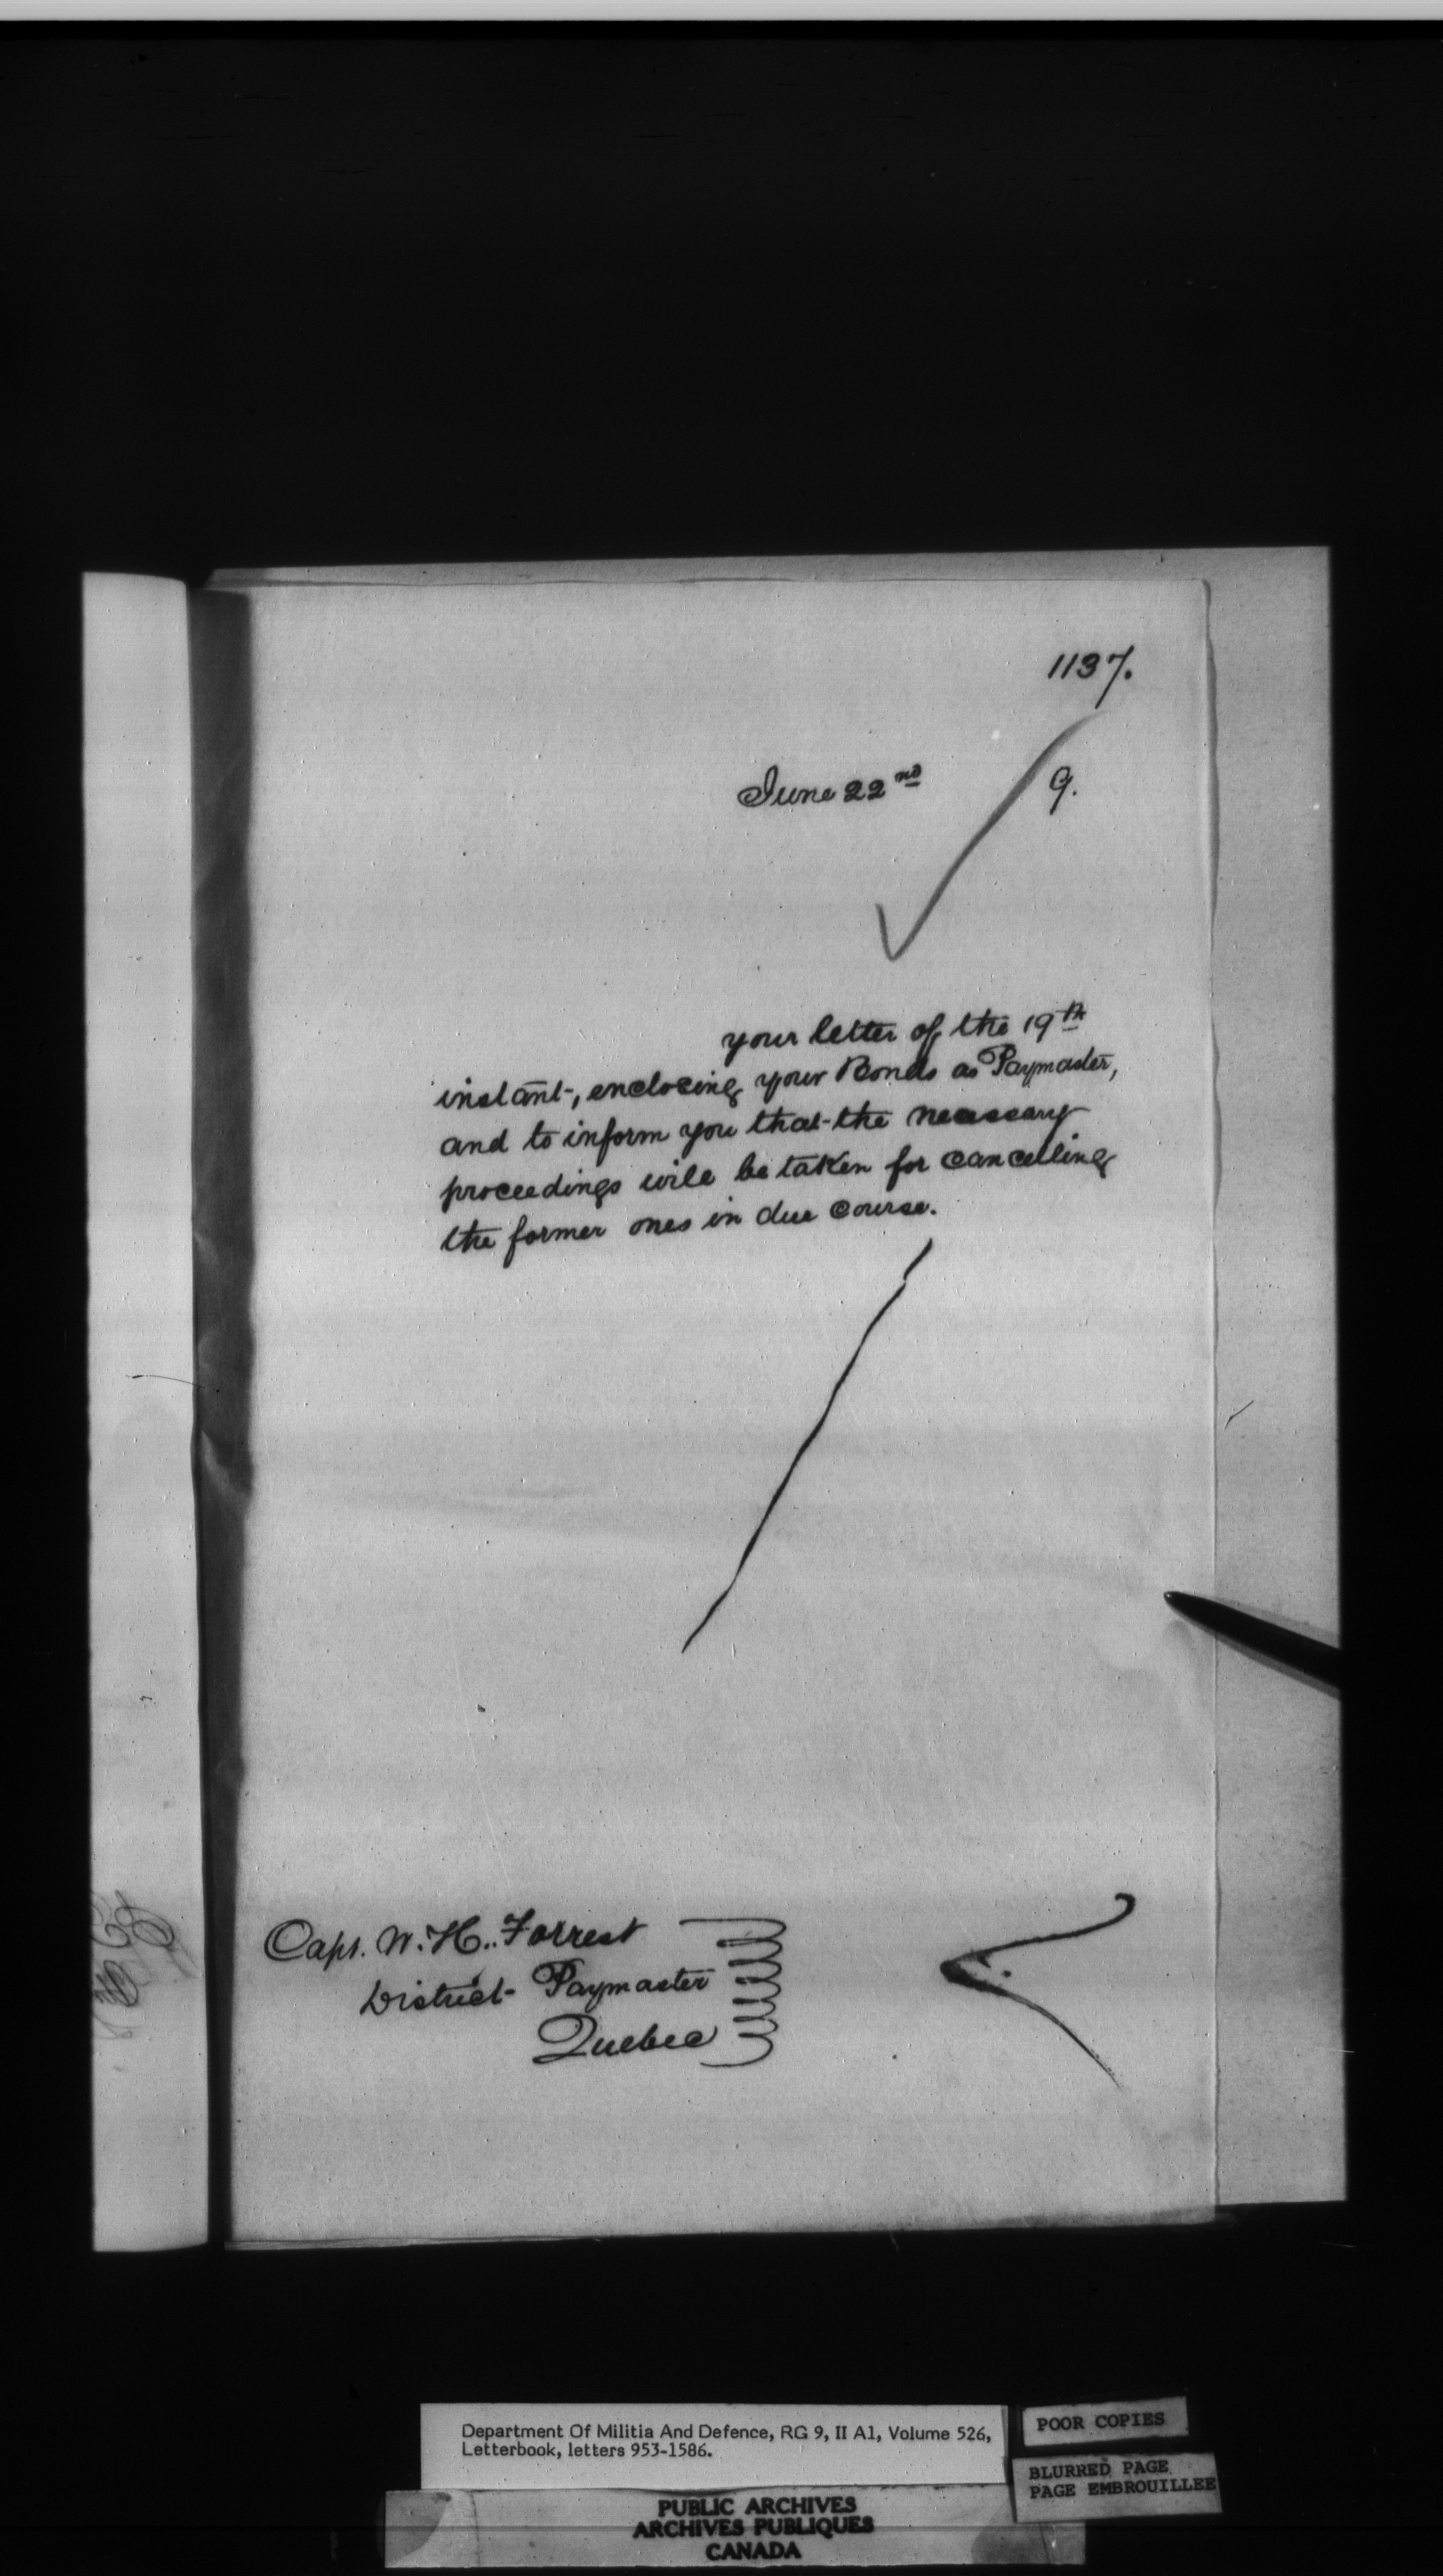 1137.
June 22nd 9.
your letter of the 19th
instant, enclosing your Bonds as Paymaster,
and to inform you that the necessary
proceedings will be taken for cancelling
the former ones in due course.
Capt. W. H. Forrest
District Paymaster
Quebec
Department Of Militia And Defence, RG 9, II A1, Volume 526,
Letterbook, letters 953-1586.
POOR COPIES
BLURRED PAGE
PAGE EMBROUILLEE
PUBLIC ARCHIVES
ARCHIVES PUBLIQUES
CANADA